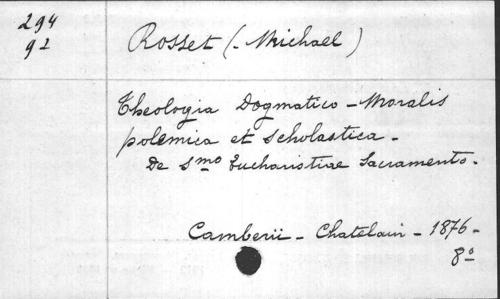 294
92
Rosset (-Michael)
Theologia Dogmatico-Moralis
polemica et scholastica-
De Smo Eucharistiae Sacramento.
Camberii - Chatelain - 1876-
8o